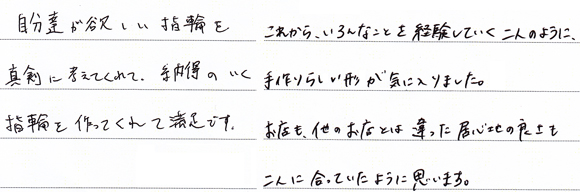 自分達が欲しい指輪を
真剣に考えてくれて、納得のいく
指輪を作ってくれて満足です。
これから、いろんなことを経験していく二人のように、
手作りらしい形が気に入りました。
お店も、他のお店とは違った居心地の良さも
二人に合っていたように思います。